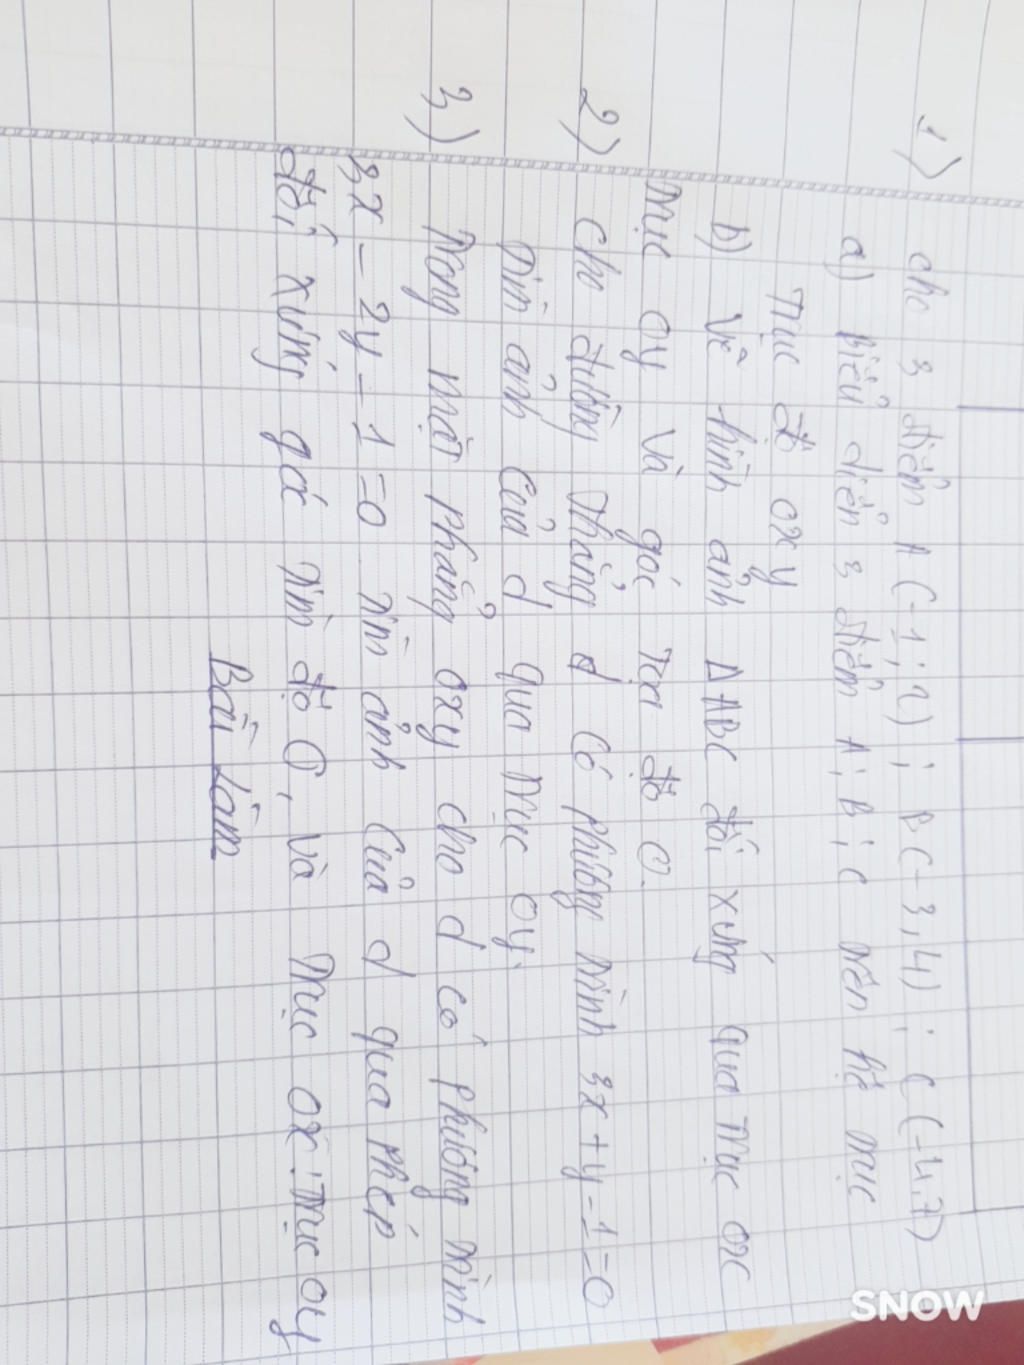 1) cho 3 điểm A (-1; 2) ; B (-3, 4) ; C (-4, 7)
a) Biểu diễn 3 điểm A; B; C trên hệ trục
Trục độ oxy
b) Vẽ hình ảnh ΔABC đối xứng qua trục ox
Trục oy và gốc tọa độ O.
2) cho đường thẳng d có phương trình 3x + y - 1 = 0
tìm ảnh của d qua trục oy.
3) Trong mặt phẳng oxy cho d có phương trình
3x - 2y - 1 = 0 tìm ảnh của d qua phép
đối xứng gốc tìm độ O, và trục ox; trục oy
Bài Làm
SNOW